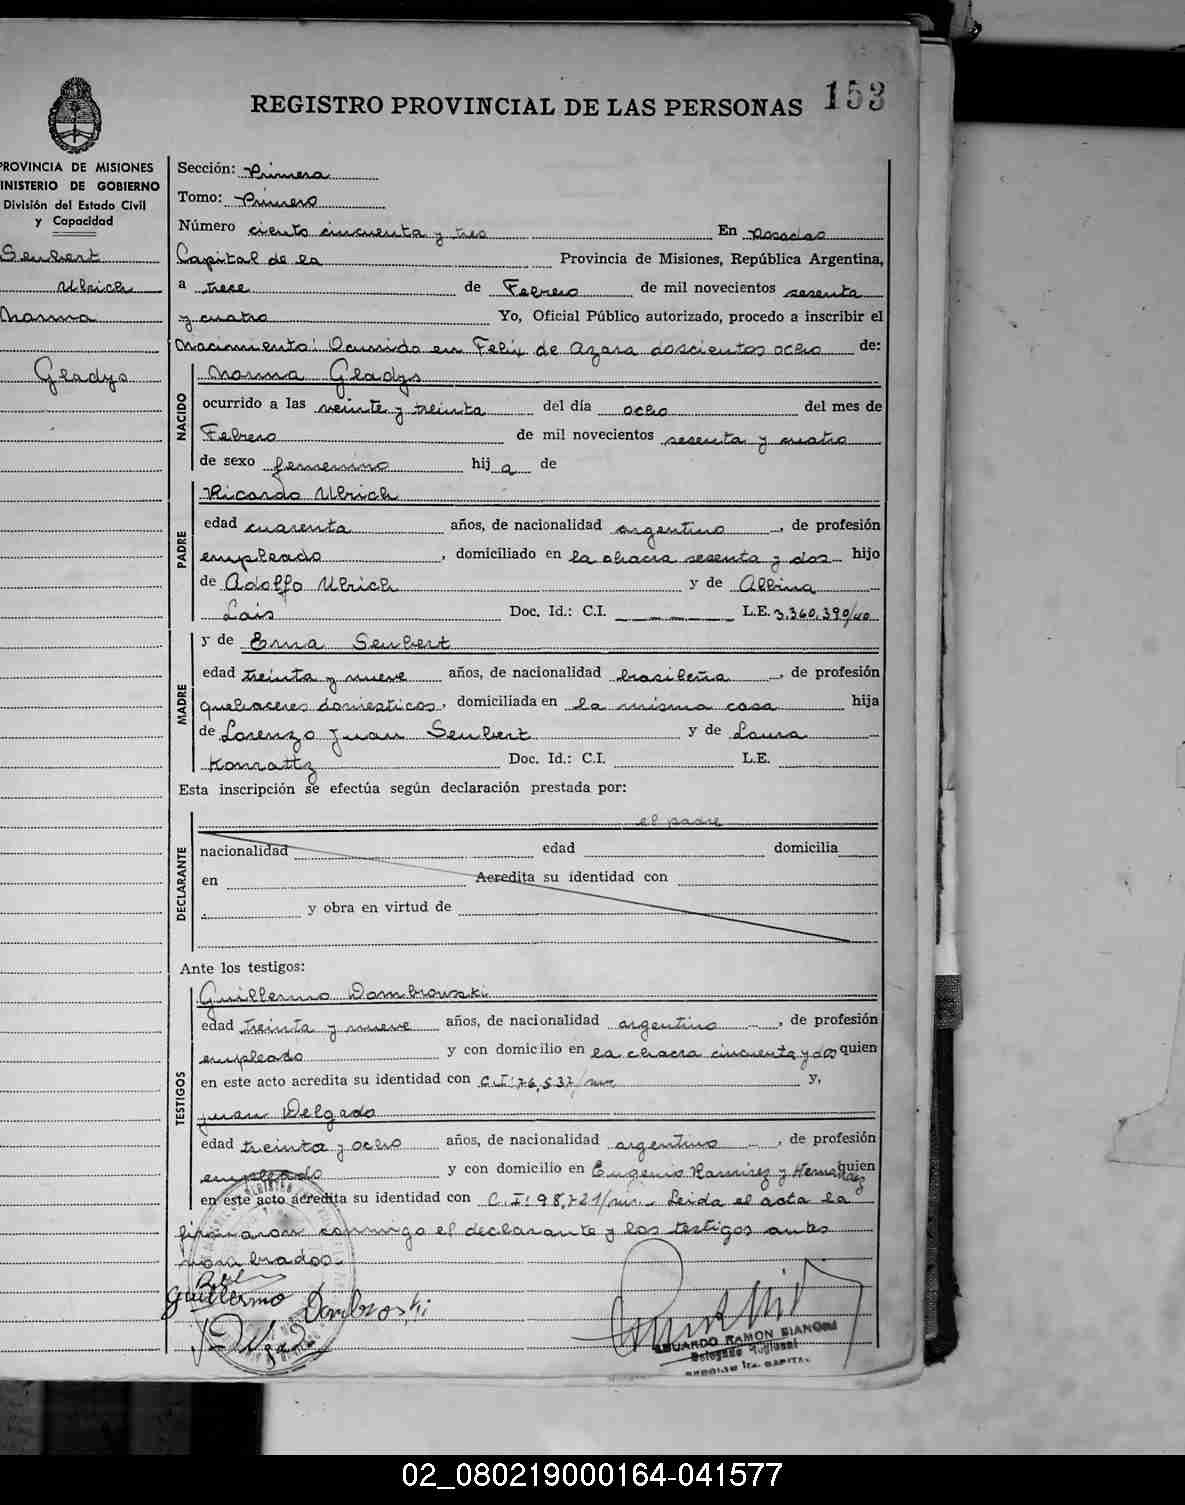 REGISTRO PROVINCIAL DE LAS PERSONAS 153
PROVINCIA DE MISIONES
MINISTERIO DE GOBIERNO
División del Estado Civil
y Capacidad
Seubert
Ulrich
Norma
Gladys
Sección: Primera
Tomo: Primero
Número ciento cincuenta y tres En Posadas
Capital de la Provincia de Misiones, República Argentina,
a trece de Febrero de mil novecientos sesenta
y cuatro Yo, Oficial Público autorizado, procedo a inscribir el
Nacimiento: Ocurrido en Felix de Azara doscientos ocho de:
NACIDO
Norma Gladys
ocurrido a las veinte y treinta del día ocho del mes de
Febrero de mil novecientos sesenta y cuatro
de sexo femenino hija de
PADRE
Ricardo Ulrich
edad cuarenta años, de nacionalidad argentino, de profesión
empleado, domiciliado en la chacra sesenta y dos hijo
de Adolfo Ulrich y de Albina
Lais Doc. Id.: C.I. L.E. 3.360.390/40
MADRE
y de Erna Seubert
edad treinta y nueve años, de nacionalidad brasileña, de profesión
quehaceres domesticos, domiciliada en la misma casa hija
de Lorenzo Juan Seubert y de Laura
Konrattz Doc. Id.: C.I. L.E.
Esta inscripción se efectúa según declaración prestada por:
DECLARANTE
el padre
nacionalidad edad domicilia
en Acredita su identidad con
y obra en virtud de
Ante los testigos:
TESTIGOS
Guillermo Dombrowski
edad treinta y nueve años, de nacionalidad argentino, de profesión
empleado y con domicilio en la chacra cincuenta y dos quien
en este acto acredita su identidad con C.I: 76.537/mr y,
Juan Delgado
edad treinta y ocho años, de nacionalidad argentino, de profesión
empleado y con domicilio en Eugenio Ramirez y Hernandez quien
en este acto acredita su identidad con C.I: 98.721/mr. Leida el acta la
firmaron conmigo el declarante y los testigos antes
nombrados.
Guillermo Dombroski
J Delgado
EDUARDO RAMON BIANCHI
Delegado Regional
02_080219000164-041577